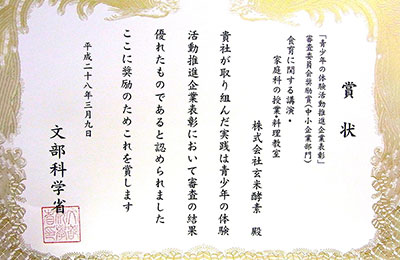 賞状
「青少年の体験活動推進企業表彰」
審査委員会奨励賞(中小企業部門)
食育に関する講演・
家庭科の授業・料理教室
株式会社玄米酵素 殿
貴社が取り組んだ実践は青少年の体験
活動推進企業表彰において審査の結果
優れたものであると認められました
ここに奨励のためこれを賞します
平成二十八年三月九日
文部科学省